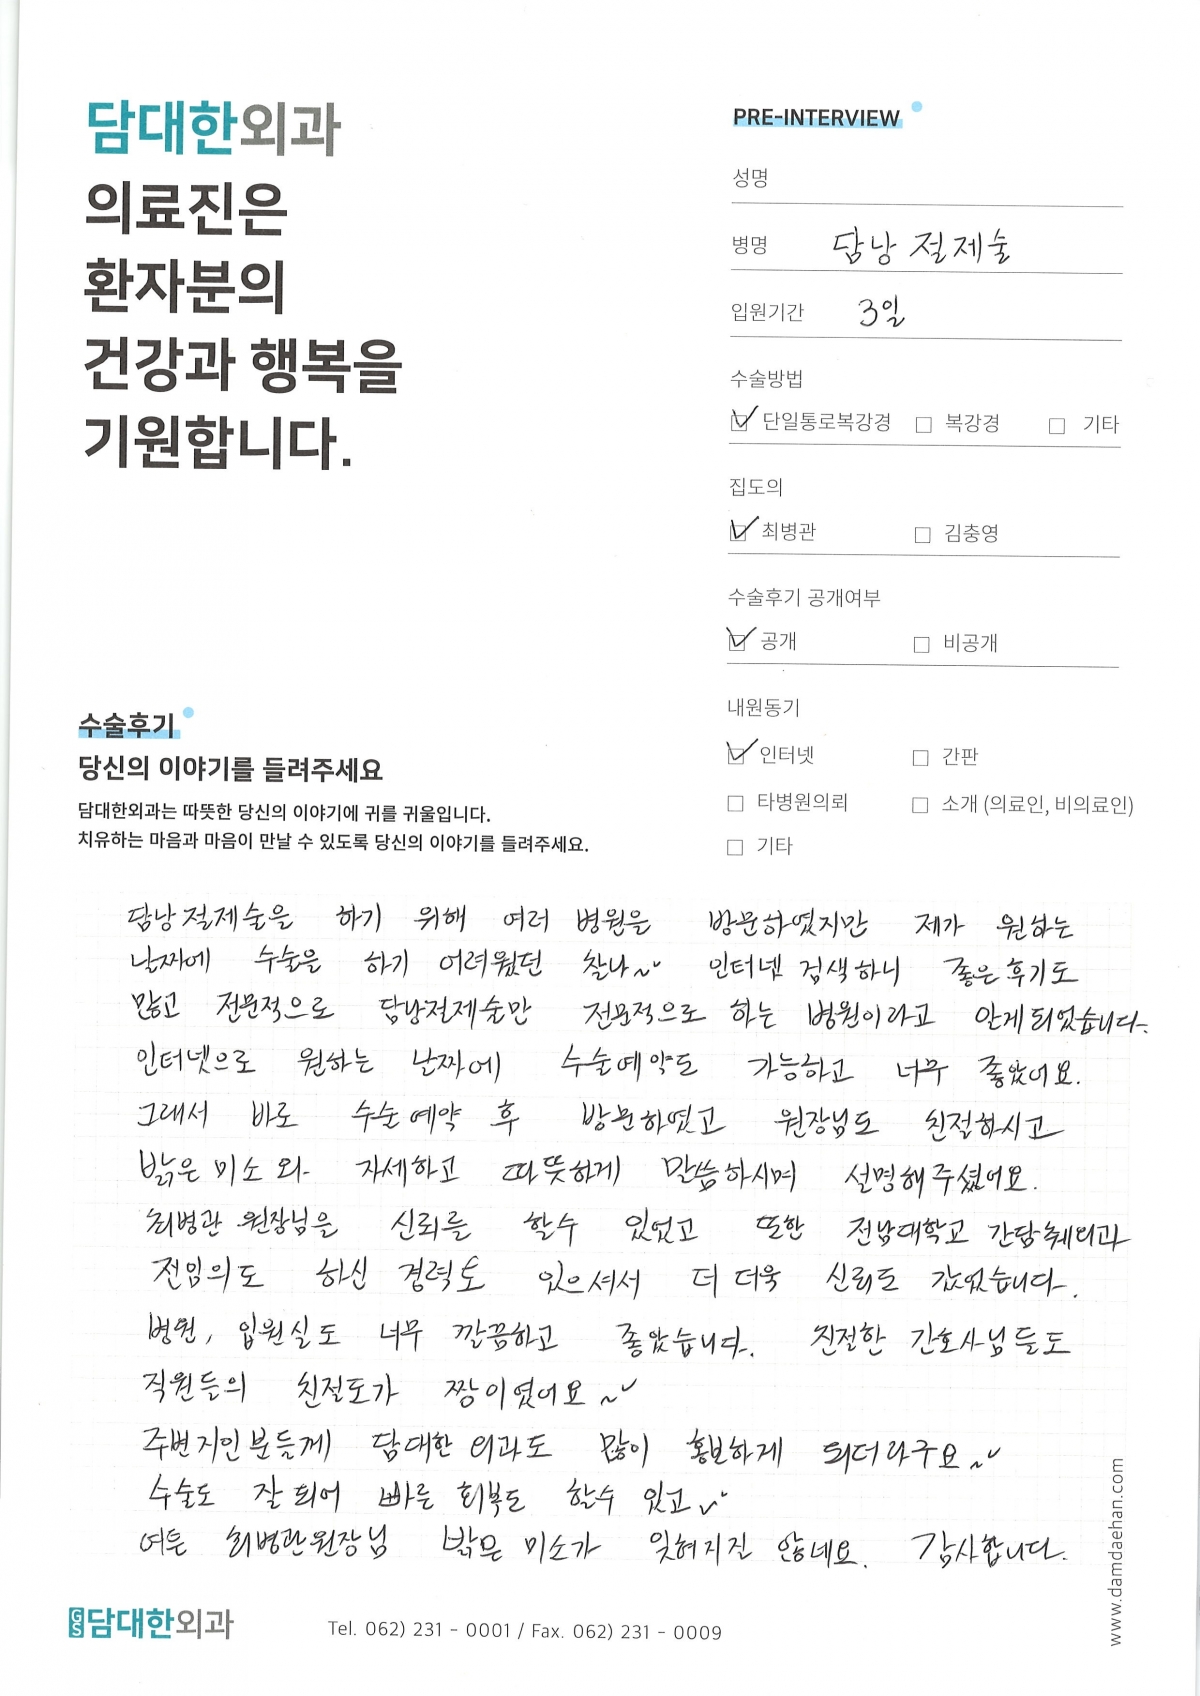 담대한외과
의료진은
환자분의
건강과 행복을
기원합니다.
PRE-INTERVIEW
성명
병명 담낭 절제술
입원기간 3일
수술방법
단일통로복강경 복강경 기타
집도의
최병관 김충영
수술후기 공개여부
공개 비공개
내원동기
인터넷 간판
타병원의뢰 소개 (의료인, 비의료인)
기타
수술후기
당신의 이야기를 들려주세요
담대한외과는 따뜻한 당신의 이야기에 귀를 귀울입니다.
치유하는 마음과 마음이 만날 수 있도록 당신의 이야기를 들려주세요.
담낭절제술을 하기 위해 여러 병원을 방문하였지만 제가 원하는
날짜에 수술을 하기 어려웠던 찰나~ 인터넷 검색하니 좋은후기도
많고 전문적으로 담낭절제술만 전문적으로 하는 병원이라고 알게되었습니다.
인터넷으로 원하는 날짜에 수술예약도 가능하고 너무 좋았어요.
그래서 바로 수술예약 후 방문하였고 원장님도 친절하시고
밝은 미소와 자세하고 따뜻하게 말씀하시며 설명해주셨어요.
최병관 원장님을 신뢰를 할수 있었고 또한 전남대학교 간담췌외과
전임의도 하신 경력도 있으셔서 더 더욱 신뢰도 갔었습니다.
병원, 입원실도 너무 깔끔하고 좋았습니다. 친절한 간호사님들도
직원들의 친절도가 짱이였어요~
주변지인분들께 담대한 외과도 많이 홍보하게 되더라구요~
수술도 잘 되어 빠른 회복도 할수 있고~
여튼 최병관원장님 밝은 미소가 잊혀지진 않네요. 감사합니다.
GS 담대한외과
Tel. 062) 231 - 0001 / Fax. 062) 231 - 0009
www.damdaehan.com